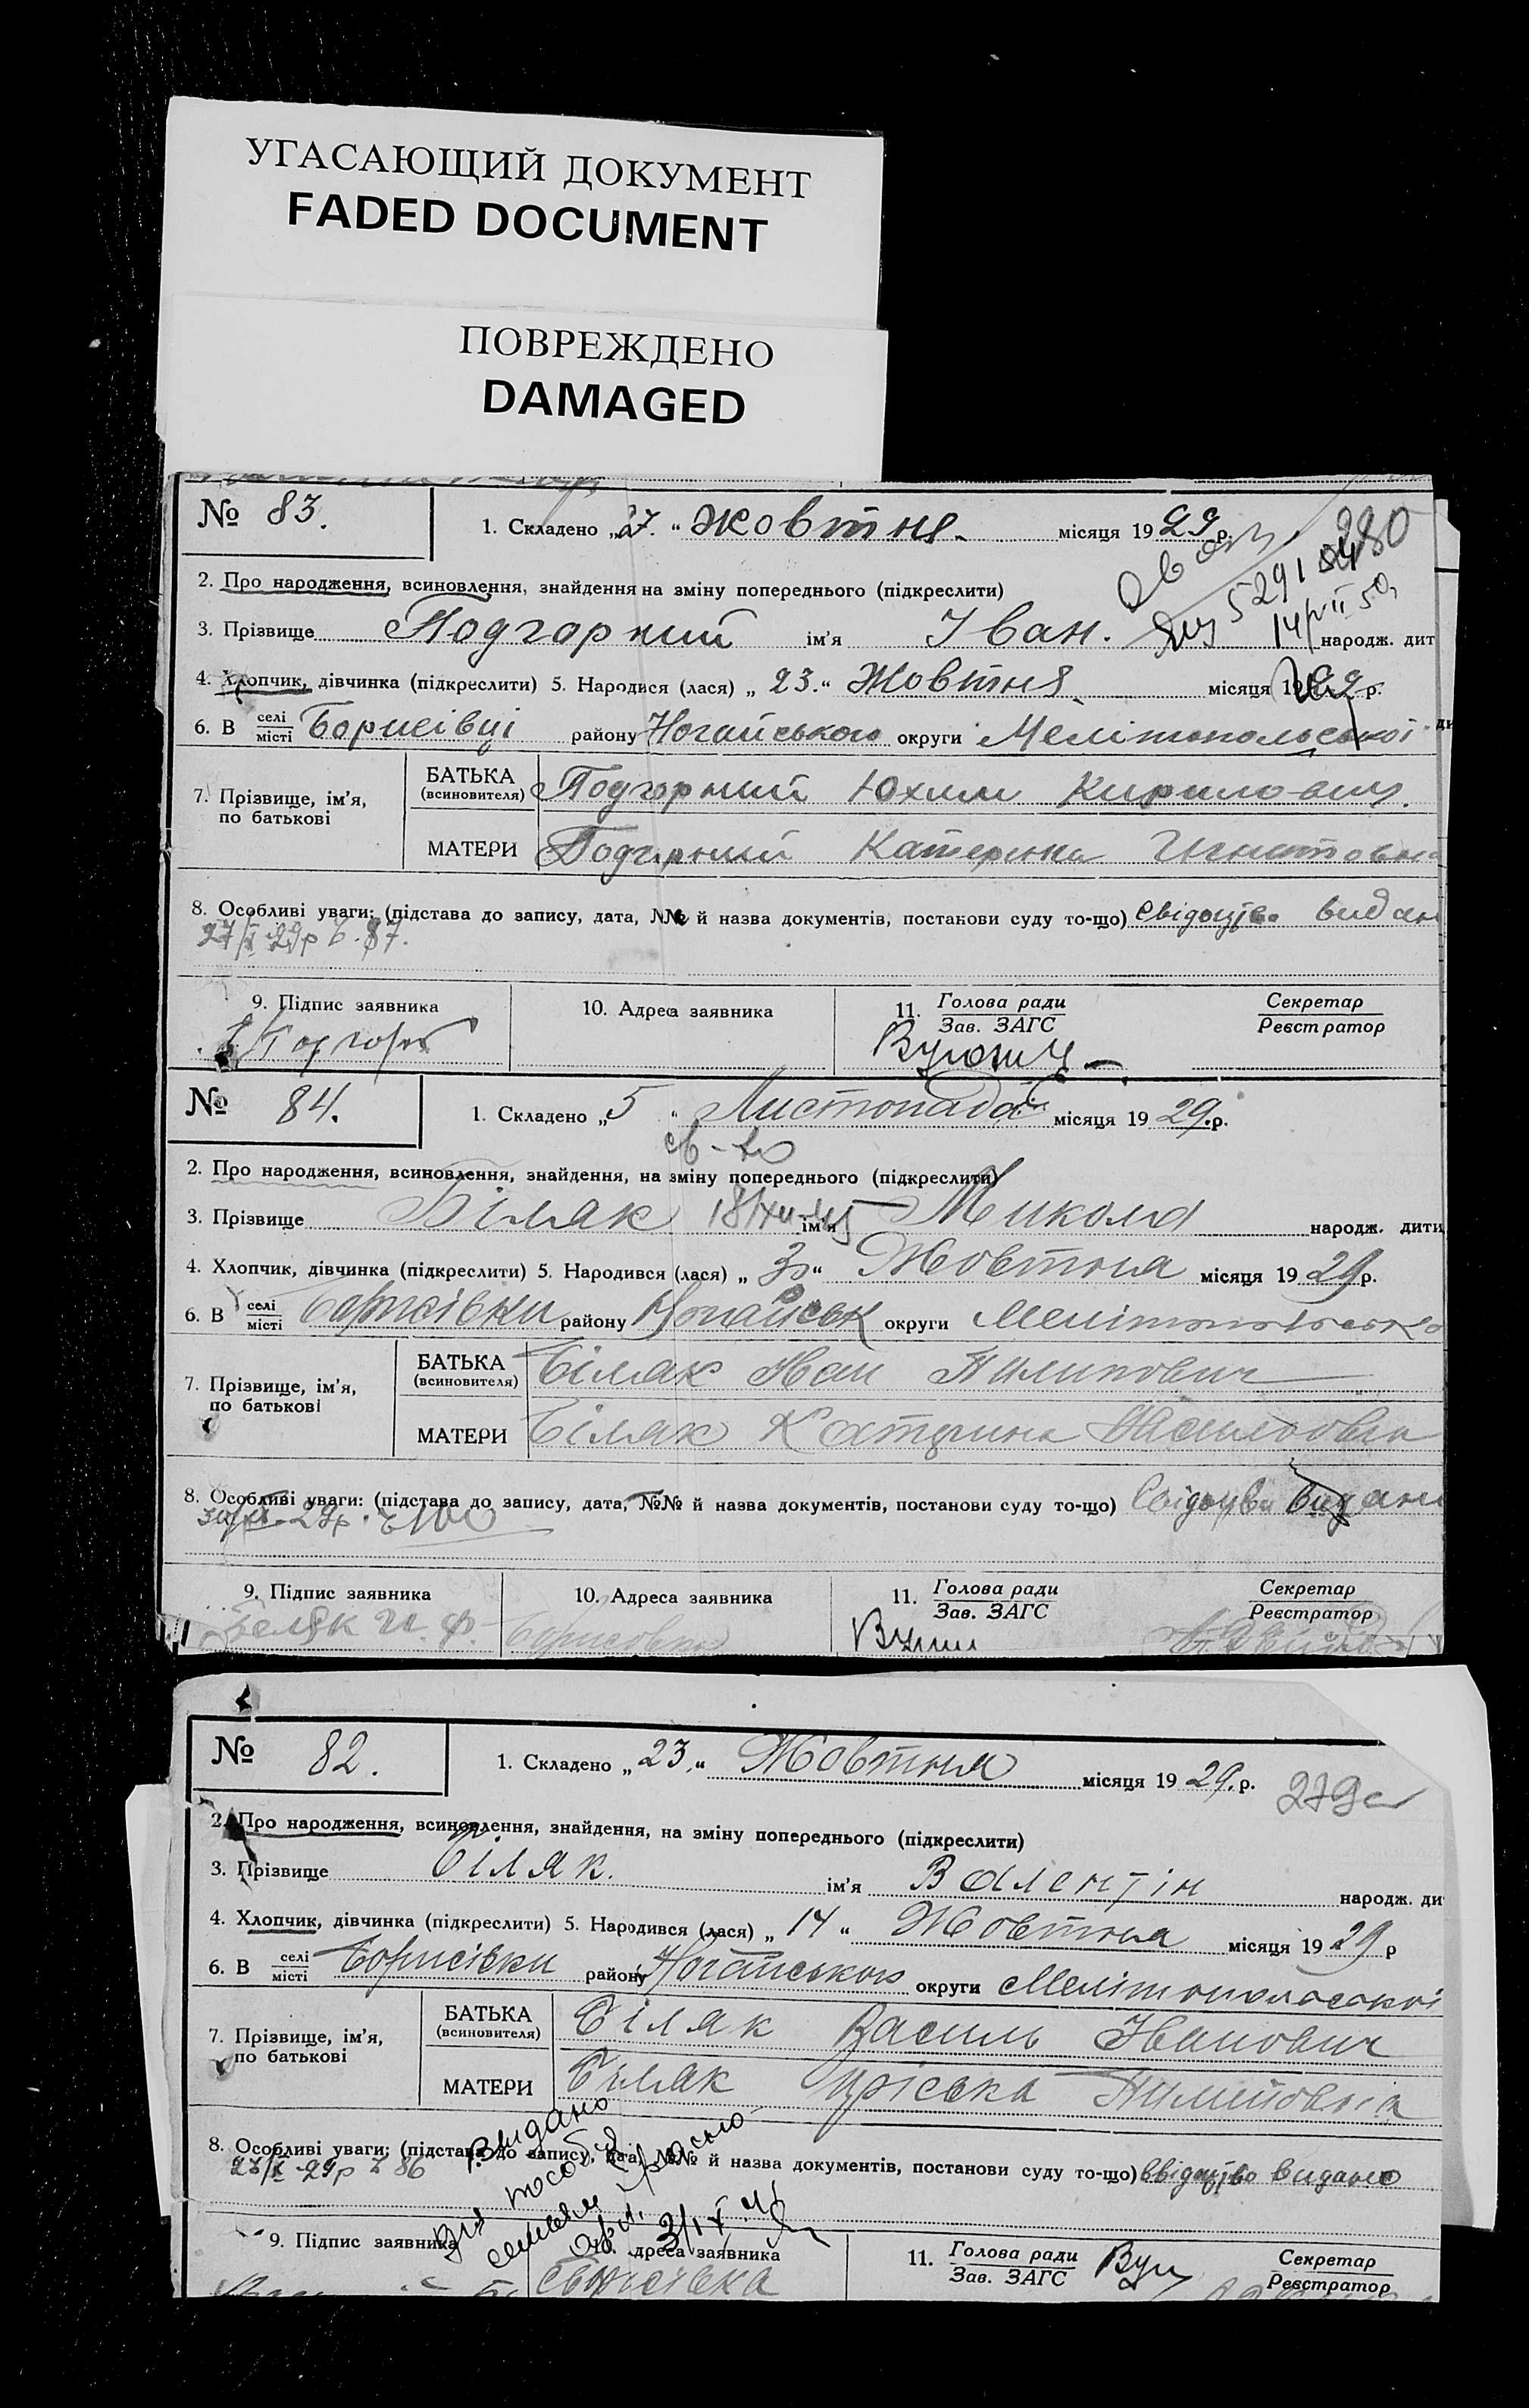 УГАСАЮЩИЙ ДОКУМЕНТ
FADED DOCUMENT
ПОВРЕЖДЕНО
DAMAGED
№ 83. 1. Складено „27.“ жовтня. місяця 1929 р.
280
2. Про народження, всиновлення, знайдення на зміну попереднього (підкреслити)
5291
14/VII 50
3. Прізвище Подгорний ім'я Іван. народж. дит
4. Хлопчик, дівчинка (підкреслити) 5. Народися (лася) „23.“ Жовтня місяця 1929 р.
6. В селі/місті Борисівці району Ногайського округи Мелітопольської
7. Прізвище, ім'я, по батькові
БАТЬКА (всиновителя) Подгорний Юхим Кирилович.
МАТЕРИ Подгорний Катерина Игнатовна
8. Особливі уваги: (підстава до запису, дата, №№ й назва документів, постанови суду то-що) Свідоцтво видан
27/X 29р № 87.
9. Підпис заявника 10. Адреса заявника 11. Голова ради/Зав. ЗАГС Секретар/Реєстратор
№ 84. 1. Складено „5“ Листопада місяця 1929.р.
св-во
2. Про народження, всиновлення, знайдення, на зміну попереднього (підкреслити)
3. Прізвище Біляк ім'я Микола народж. дити
4. Хлопчик, дівчинка (підкреслити) 5. Народився (лася) „ “ Жовтня місяця 1929 р.
6. В селі/місті Борисівки району Ногайськ округи Мелітопольсько
7. Прізвище, ім'я, по батькові
БАТЬКА (всиновителя) Біляк Иван Пилипович
МАТЕРИ Біляк Катерина
8. Особливі уваги: (підстава до запису, дата, №№ й назва документів, постанови суду то-що) Свідоцтво видано
29р. № 100
9. Підпис заявника 10. Адреса заявника 11. Голова ради/Зав. ЗАГС Секретар/Реєстратор
Беляк И. Ф. Борисовка
№ 82. 1. Складено „23.“ Жовтня місяця 1929. р.
279
2. Про народження, всиновлення, знайдення, на зміну попереднього (підкреслити)
3. Прізвище Біляк. ім'я Валентін народж. ди
4. Хлопчик, дівчинка (підкреслити) 5. Народився (лася) „14“ Жовтня місяця 1929 р
6. В селі/місті Борисівки району Ногайського округи Мелітопольської
7. Прізвище, ім'я, по батькові
БАТЬКА (всиновителя) Біляк Василь Іванович
МАТЕРИ Біляк Пилиповна
8. Особливі уваги: (підстава до запису, дата, №№ й назва документів, постанови суду то-що) Свідоцтво видано
27/X 29р № 86
Выдано
для пособия
семьям
9. Підпис заявника 10. Адреса заявника 11. Голова ради/Зав. ЗАГС Секретар/Реєстратор